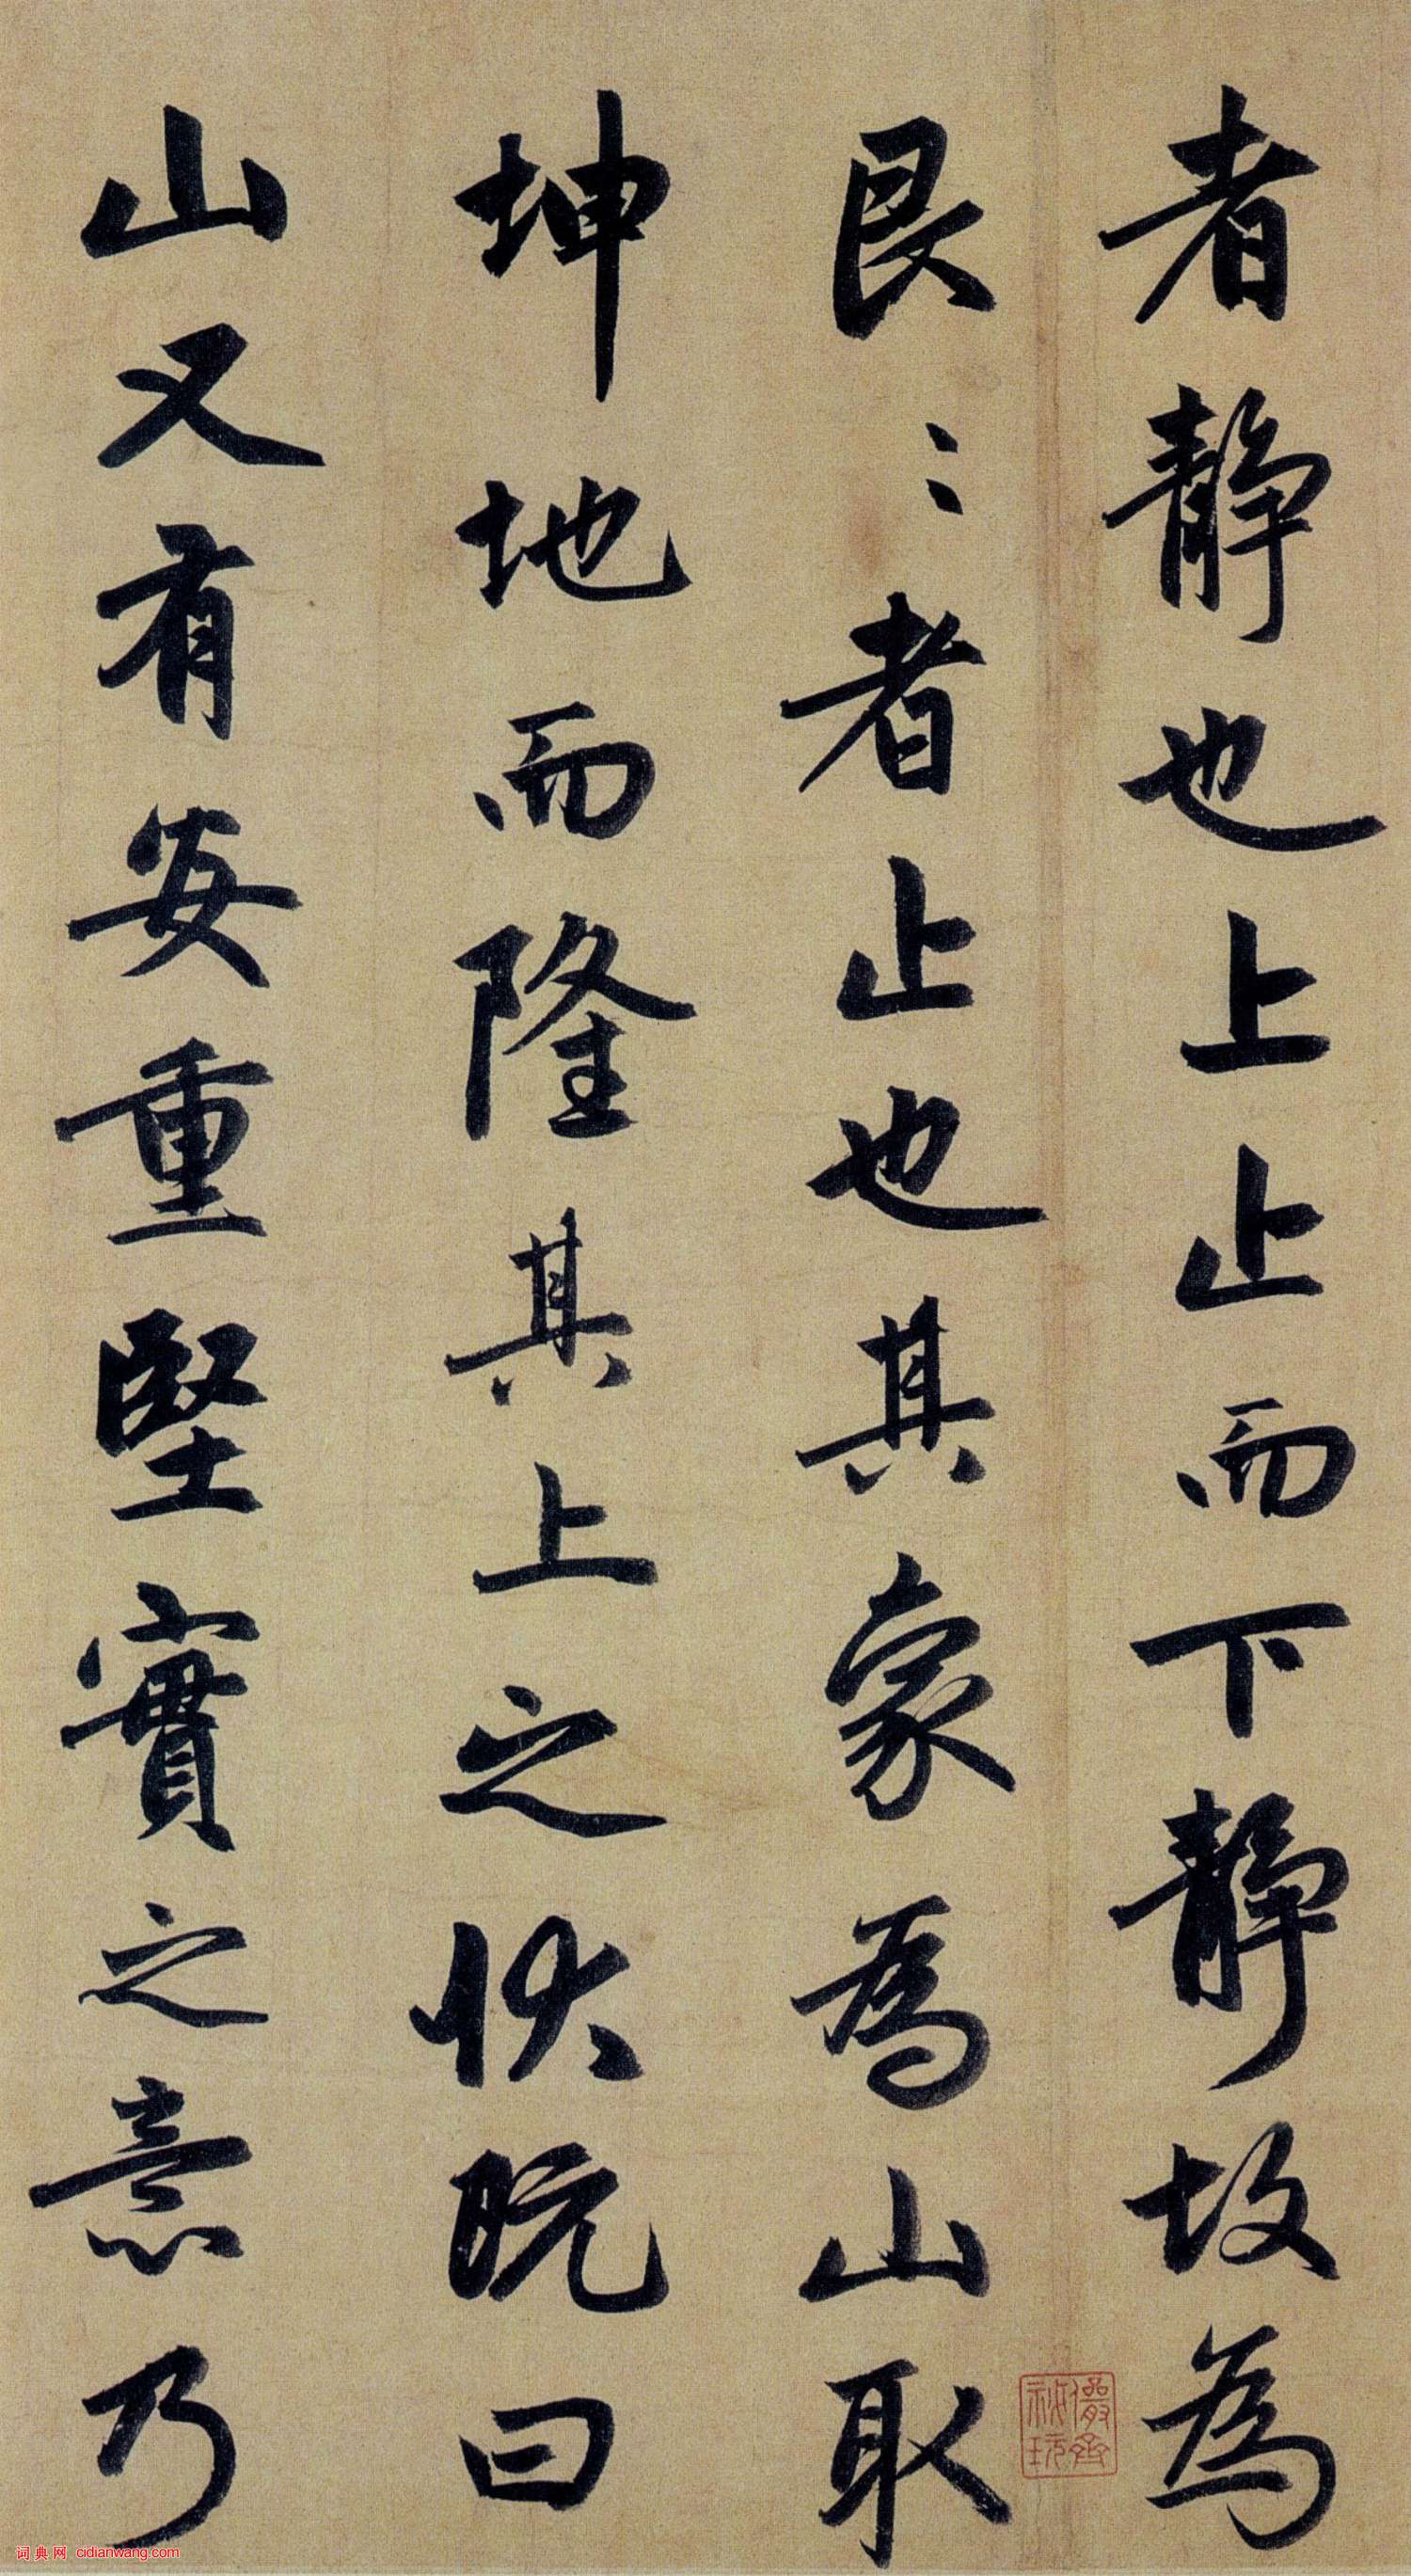 者靜也上止而下靜故為
艮〻者止也其象為山取
坤地而隆其上之狀既曰
山又有安重堅實之意乃
儼齋
秘玩
词典网 cidianwang.com